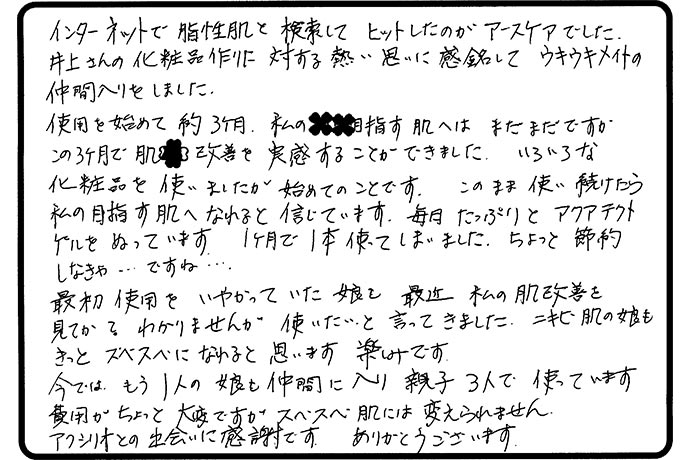 インターネットで 脂性肌と 検索して ヒットしたのが アースケアでした.
井上さんの 化粧品作りに 対する 熱い 思いに 感銘して ウキウキメイトの
仲間入りをしました.
使用を始めて 約 3ケ月. 私の目指す 肌へは まだまだですが
この3ケ月で 肌 改善を 実感することができました. いろいろな
化粧品を 使いましたが 始めてのことです. このまま 使い 続けたら
私の目指す肌へ なれると 信じています. 毎日 たっぷりと アクアテクト
ゲルを ぬっています 1ケ月で 1本 使ってしまいました. ちょっと 節約
しなきゃ… ですね….
最初 使用を いやがって いた 娘も 最近 私の 肌改善を
見てか わかりませんが 使いたいと 言ってきました. ニキビ 肌の娘も
きっと スベスベに なれると 思います 楽しみです.
今では もう 1人の 娘も 仲間に 入り 親子 3人で 使っています
費用が ちょっと 大変ですが スベスベ 肌には 変えられません.
アクシリオとの 出会いに 感謝です. ありがとうございます.